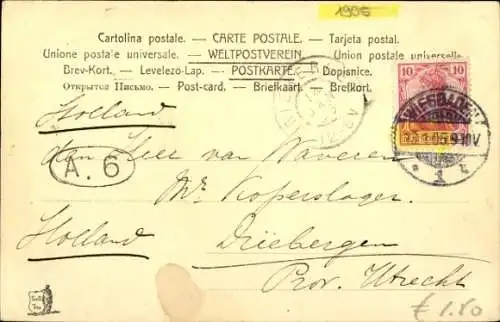 1906
Cartolina postale. — CARTE POSTALE. — Tarjeta postal.
Unione postale universale. — WELTPOSTVEREIN. — Union postale universelle.
Brev-Kort. — Levelezo-Lap. — POSTKARTE. — Dopisnice.
Открытое Письмо. — Post-card. — Briefkaart. — Brefkort.
10 10
WIESBADEN
9-10V
1
Holland
den Heer van Waveren
A.6
Mr Koperslager
Holland
Driebergen
Prov. Utrecht
£ 1.80